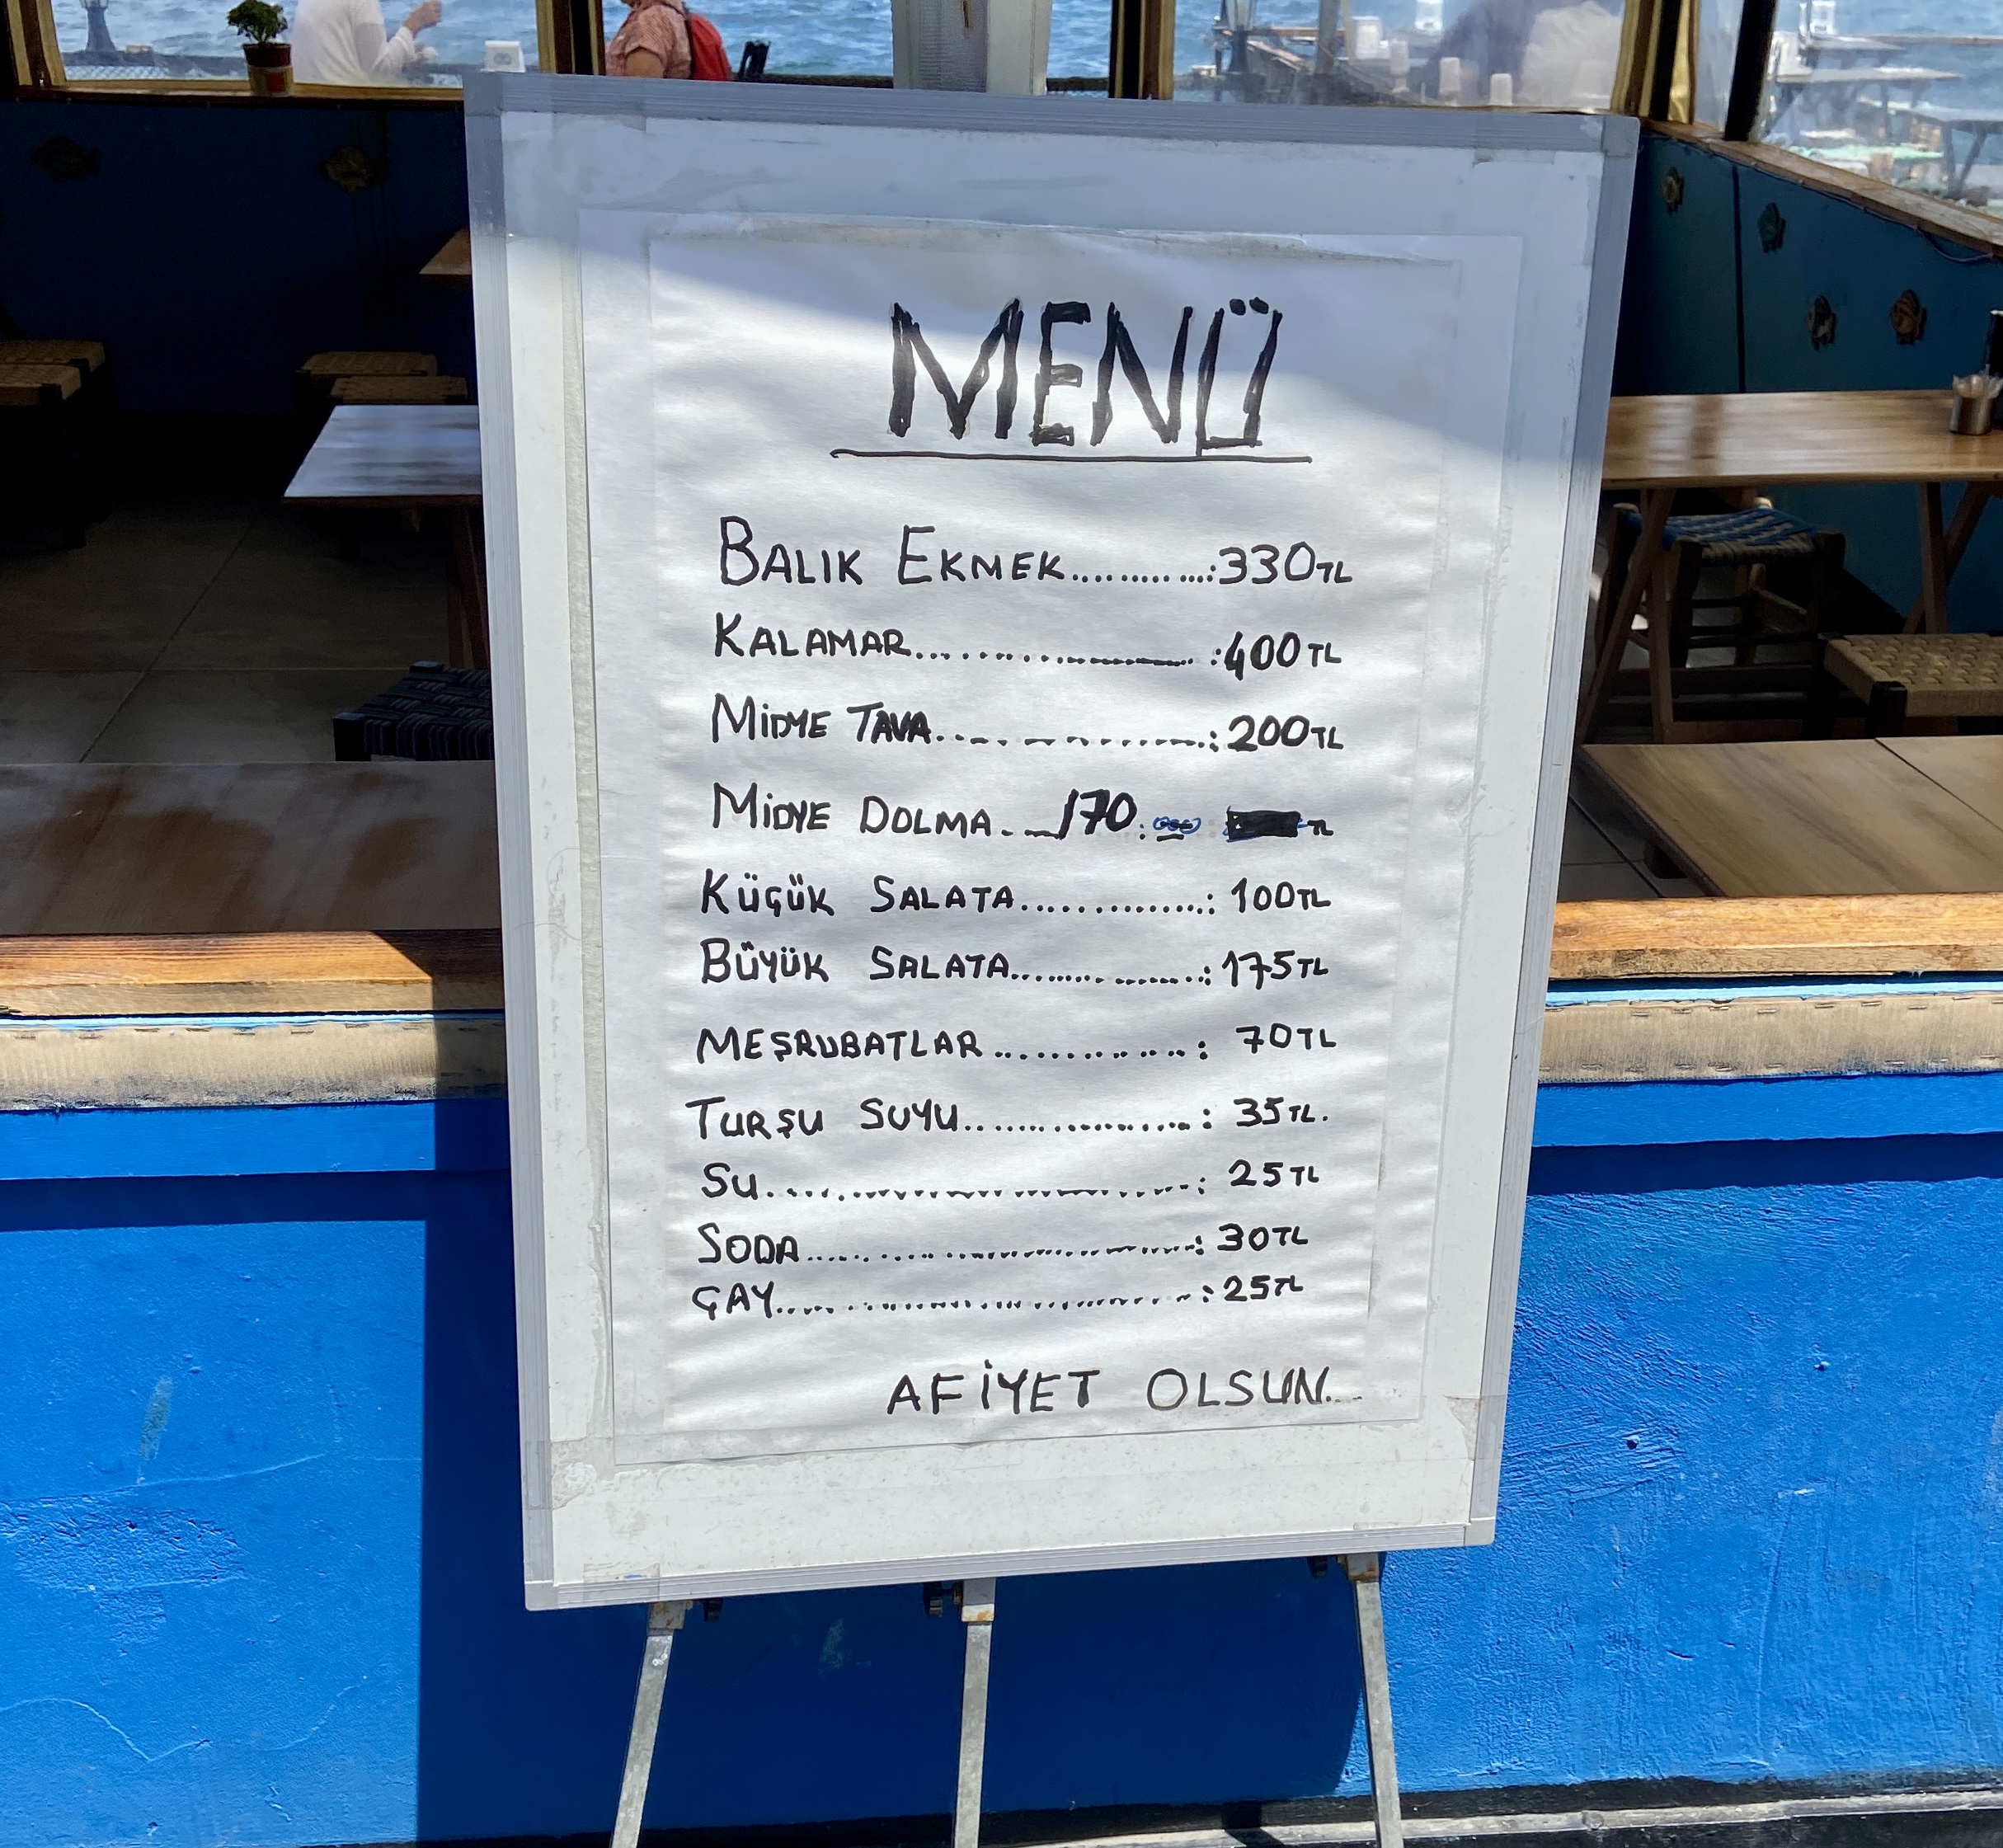 MENÜ
BALIK EKMEK...........:330TL
KALAMAR...................:400TL
MİDYE TAVA...................:200TL
MİDYE DOLMA...170.: TL
KÜÇÜK SALATA..............: 100TL
BÜYÜK SALATA...............:175TL
MEŞRUBATLAR..............: 70TL
TURŞU SUYU.................: 35TL.
SU..............................: 25TL
SODA..............................: 30TL
ÇAY..............................: 25TL
AFİYET OLSUN...